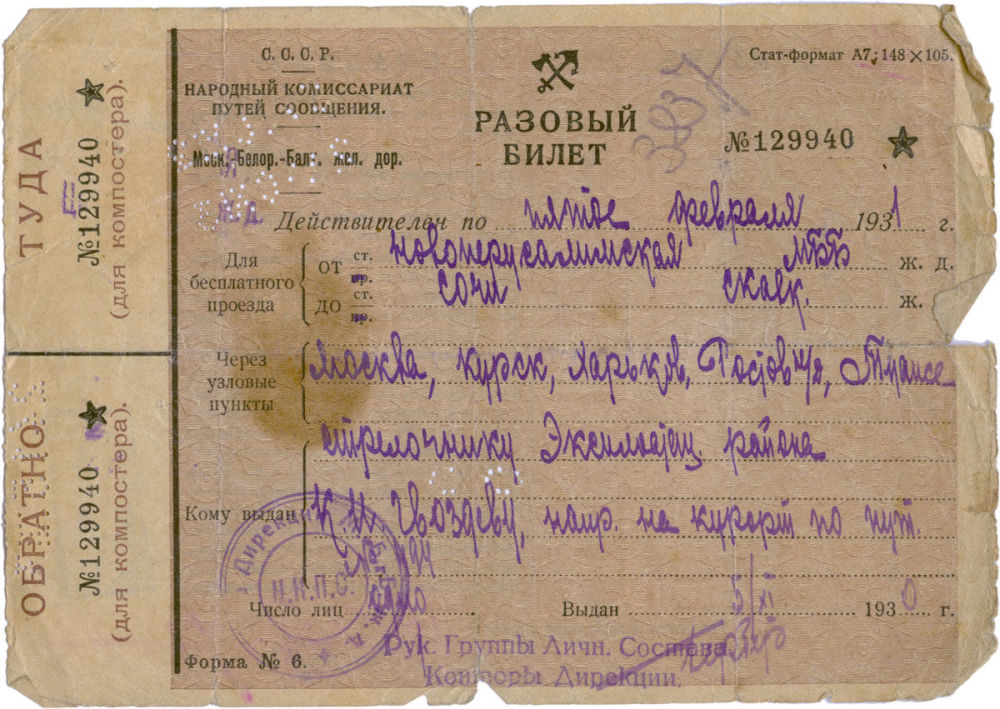 ТУДА
№129940
(для компостера).
ОБРАТНО
№129940
(для компостера).
С. С. С. Р.
НАРОДНЫЙ КОМИССАРИАТ
ПУТЕЙ СООБЩЕНИЯ.
Моск.-Белор.-Балт. жел. дор.
РАЗОВЫЙ
БИЛЕТ
Стат-формат А7; 148×105.
№129940
Действителен по пятое февраля 1931 г.
Для бесплатного проезда
от ст. пр. Новоиерусалимская МББ ж. д.
до ст. пр. Сочи СКавк. ж.
Через узловые пункты
Москва, Курск, Харьков, Ростов, Туапсе
Кому выдан
стрелочнику Эксплоатац. района
К И Гвоздеву, напр. на курорт по пут.
Число лиц
Выдан 5/XI 1930 г.
Дирекция
Н.К.П.С.
Рук. Группы Личн. Состава
Конторы Дирекции.
Форма № 6.